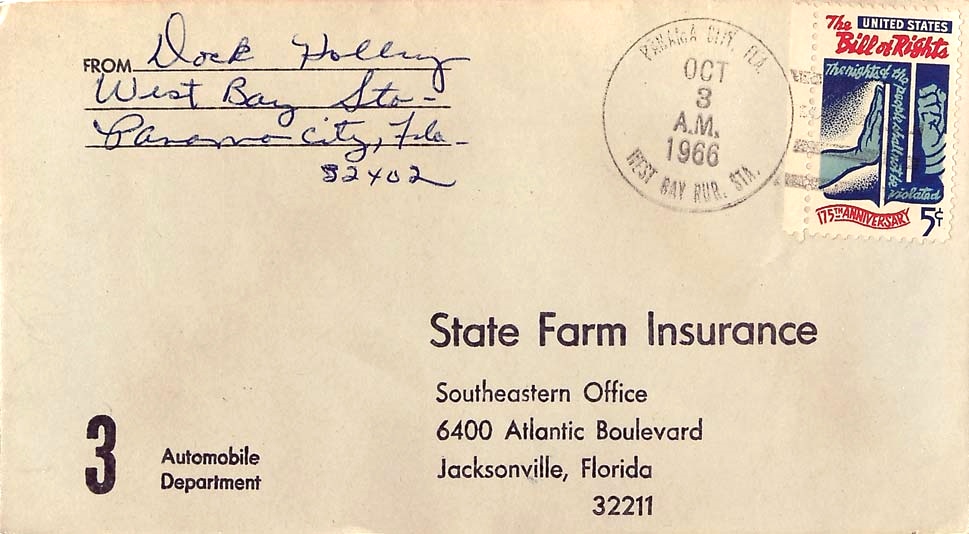 FROM Dock Holley
West Bay Sta-
Panama City, Fla-
32402
PANAMA CITY, FLA.
OCT
3
A.M.
1966
WEST BAY RUR. STA.
UNITED STATES
The
Bill of Rights
The rights of the people shall not be violated
175TH ANNIVERSARY
5¢
State Farm Insurance
Southeastern Office
6400 Atlantic Boulevard
Jacksonville, Florida
32211
3
Automobile
Department